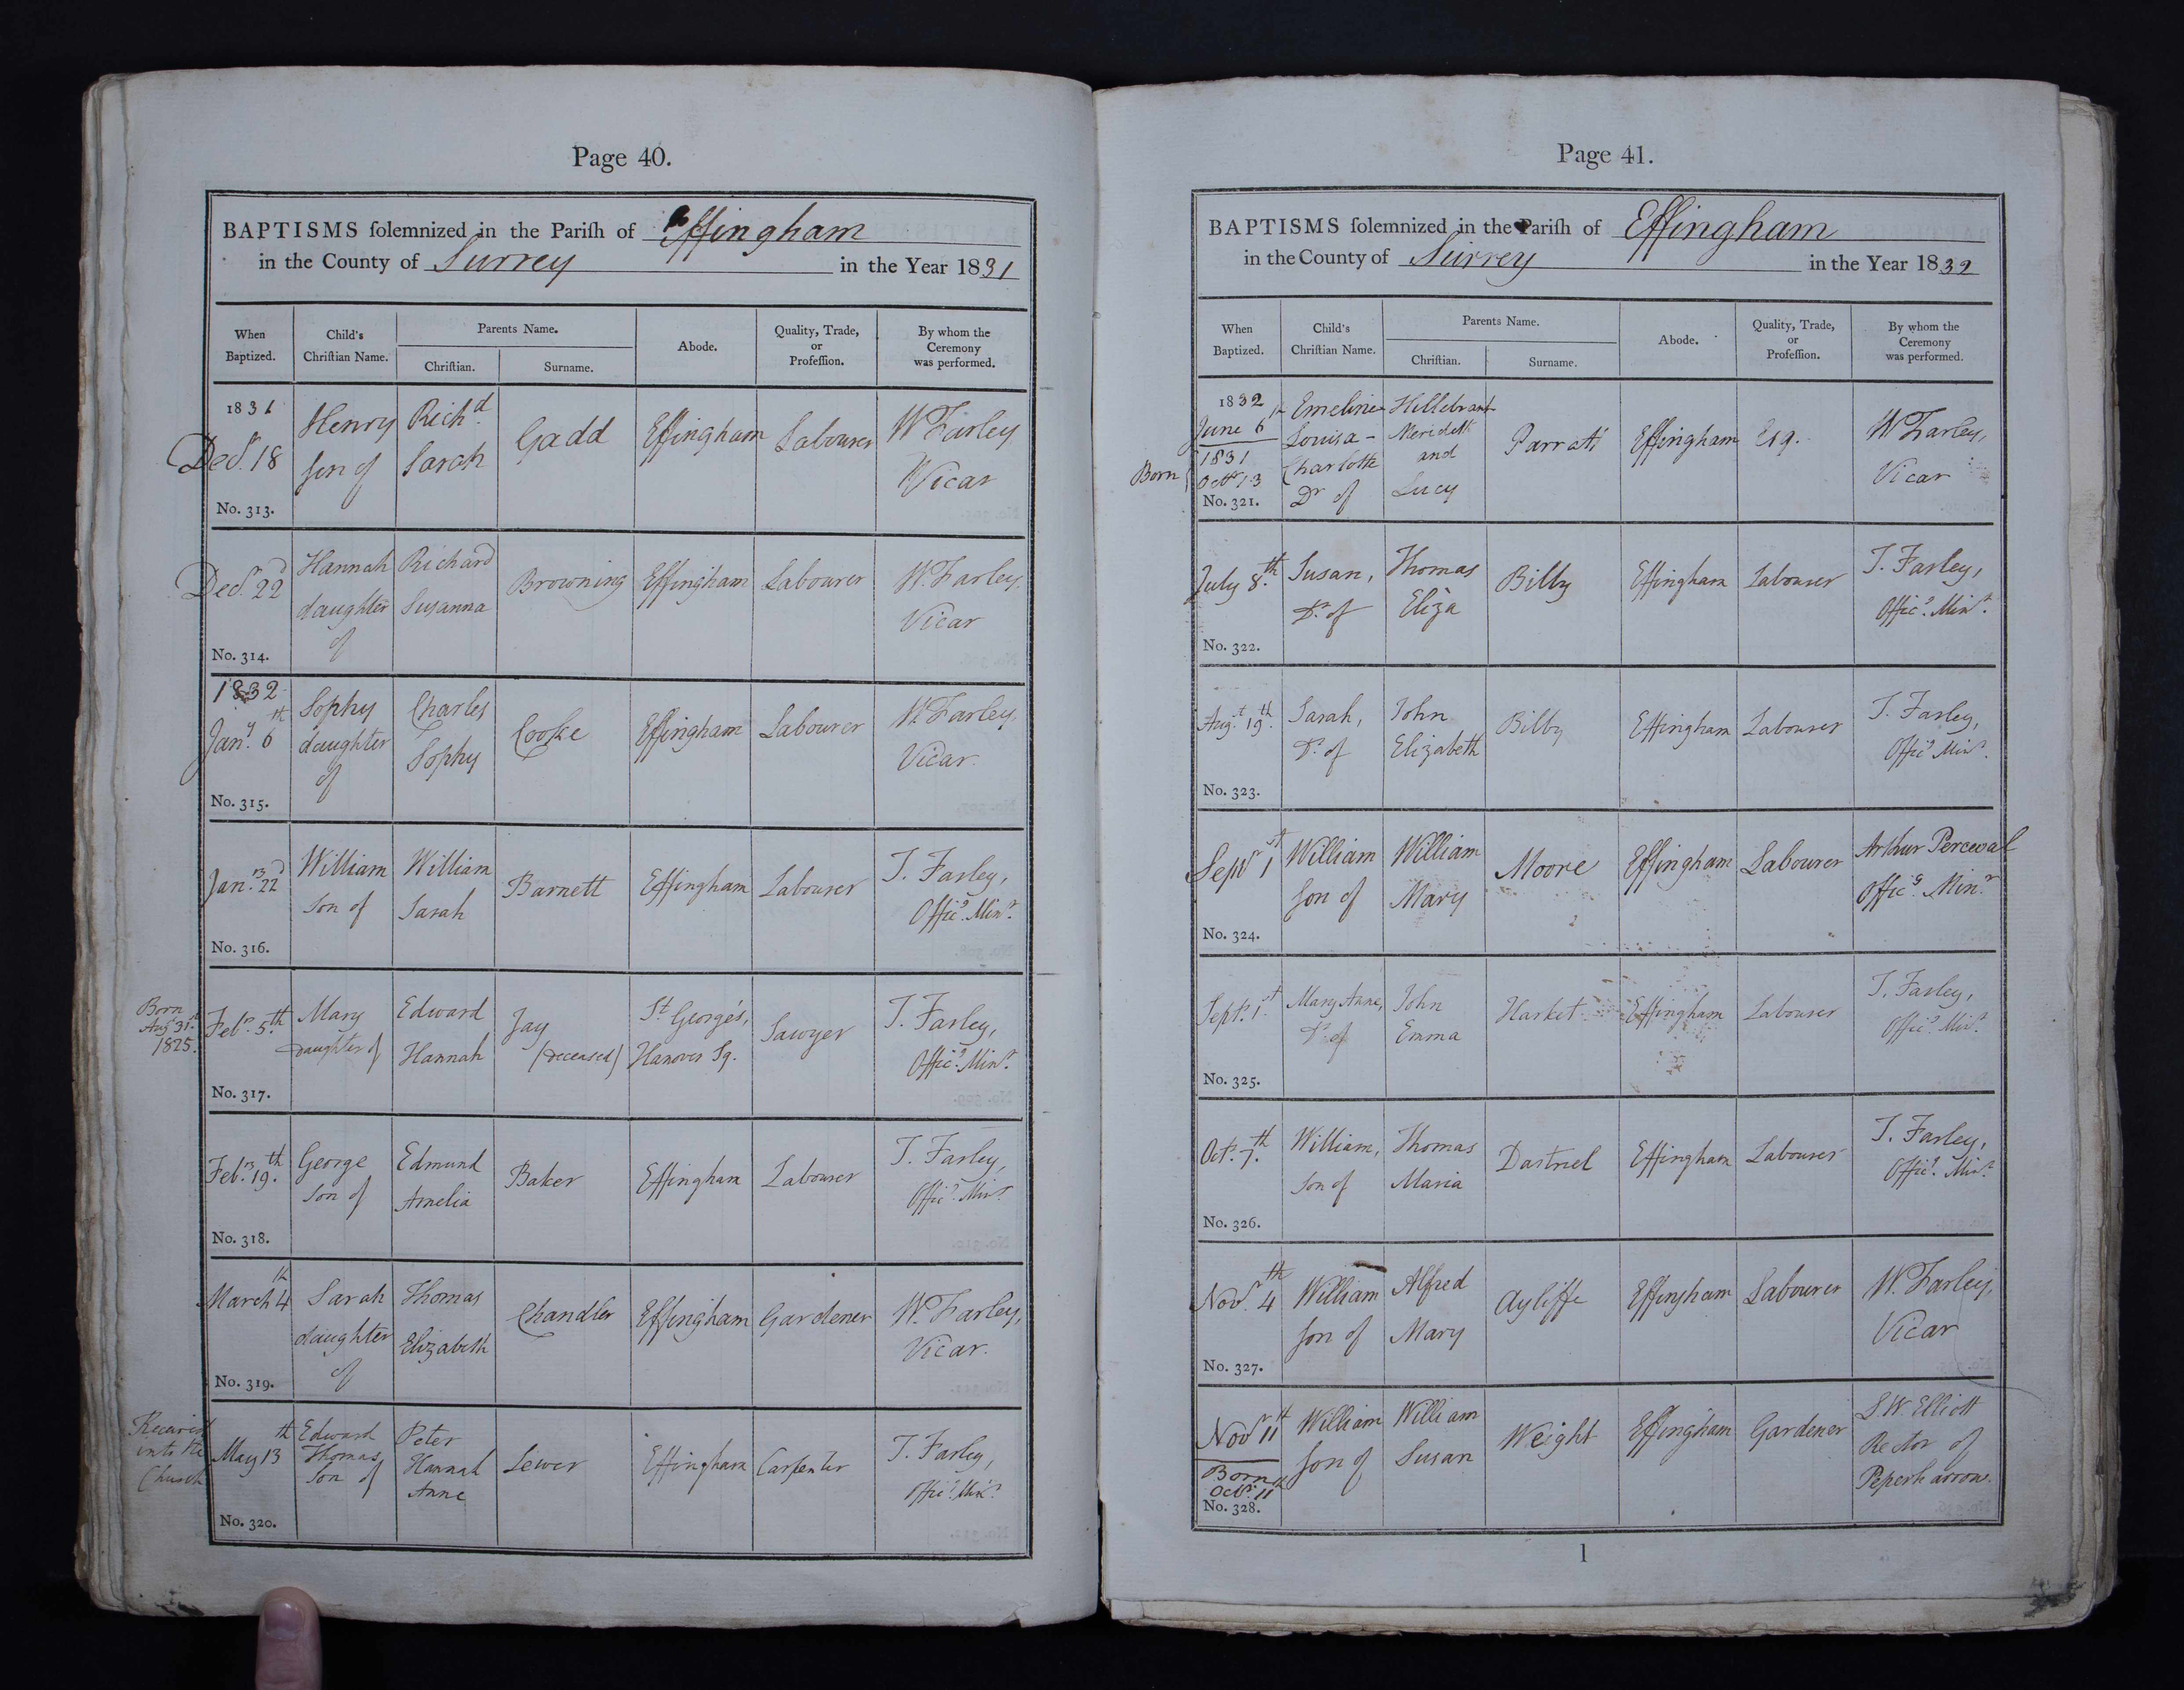 Page 40.
BAPTISMS ſolemnized in the Pariſh of Effingham
in the County of Surrey in the Year 1831
When Baptized.
Child's Chriſtian Name.
Parents Name.
Chriſtian.
Surname.
Abode.
Quality, Trade, or Profeſſion.
By whom the Ceremony was performed.
1831
Decr. 18
No. 313.
Henry
son of
Richd.
Sarah
Gadd
Effingham
Labourer
W Farley
Vicar
Decr. 22d
No. 314.
Hannah
daughter
of
Richard
Susanna
Browning
Effingham
Labourer
W. Farley,
Vicar
1832
Jany. 6th
No. 315.
Sophy
daughter
of
Charles
Sophy
Cooke
Effingham
Labourer
W. Farley,
Vicar.
Jan.ry 22d
No. 316.
William
Son of
William
Sarah
Barnett
Effingham
Labourer
T. Farley,
Officg. Minr.
Born
Augt 31st
1825.
Feby. 5.th
No. 317.
Mary
Daughter of
Edward
Hannah
Jay
(deceased)
St George's,
Hanover Sq.
Sawyer
T. Farley,
Officg. Minr.
Feb.ry 19.th
No. 318.
George
Son of
Edmund
Amelia
Baker
Effingham
Labourer
T. Farley,
Officg. Minr.
March 4th
No. 319.
Sarah
daughter
of
Thomas
Elizabeth
Chandler
Effingham
Gardener
W. Farley,
Vicar.
Received
into the
Church
May 13th
No. 320.
Edward
Thomas
Son of
Peter
Hannah
Anne
Lewer
Effingham
Carpenter
T. Farley,
Officg. Minr.
Page 41.
BAPTISMS ſolemnized in the Pariſh of Effingham
in the County of Surrey in the Year 1832
When Baptized.
Child's Chriſtian Name.
Parents Name.
Chriſtian.
Surname.
Abode.
Quality, Trade, or Profeſſion.
By whom the Ceremony was performed.
1832
June 6th
Born
1831
Octr 13
No. 321.
Emeline
Louisa
Charlotte
Dr of
Hillebrant
Merideth
and
Lucy
Parratt
Effingham
Esq.
W Farley,
Vicar
July 8.th
No. 322.
Susan,
Dr. of
Thomas
Eliza
Bilby
Effingham
Labourer
T. Farley,
Officg. Minr.
Aug.t 19.th
No. 323.
Sarah,
Dr. of
John
Elizabeth
Bilby
Effingham
Labourer
T. Farley,
Officg. Minr.
Septr 1st
No. 324.
William
son of
William
Mary
Moore
Effingham
Labourer
Arthur Perceval
Officg. Minr.
Septr. 1st.
No. 325.
Mary Anne,
Dr. of
John
Emma
Harket
Effingham
Labourer
T. Farley,
Officg. Minr.
Octr. 7.th
No. 326.
William,
Son of
Thomas
Maria
Dartnel
Effingham
Labourer
T. Farley,
Officg. Minr.
Novr. 4th
No. 327.
William
son of
Alfred
Mary
Ayliffe
Effingham
Labourer
W. Farley,
Vicar
Novr 11th
Born
Octr. 11th
No. 328.
William
son of
William
Susan
Weight
Effingham
Gardener
L. W. Elliott
Rector of
Peperharrow.
l